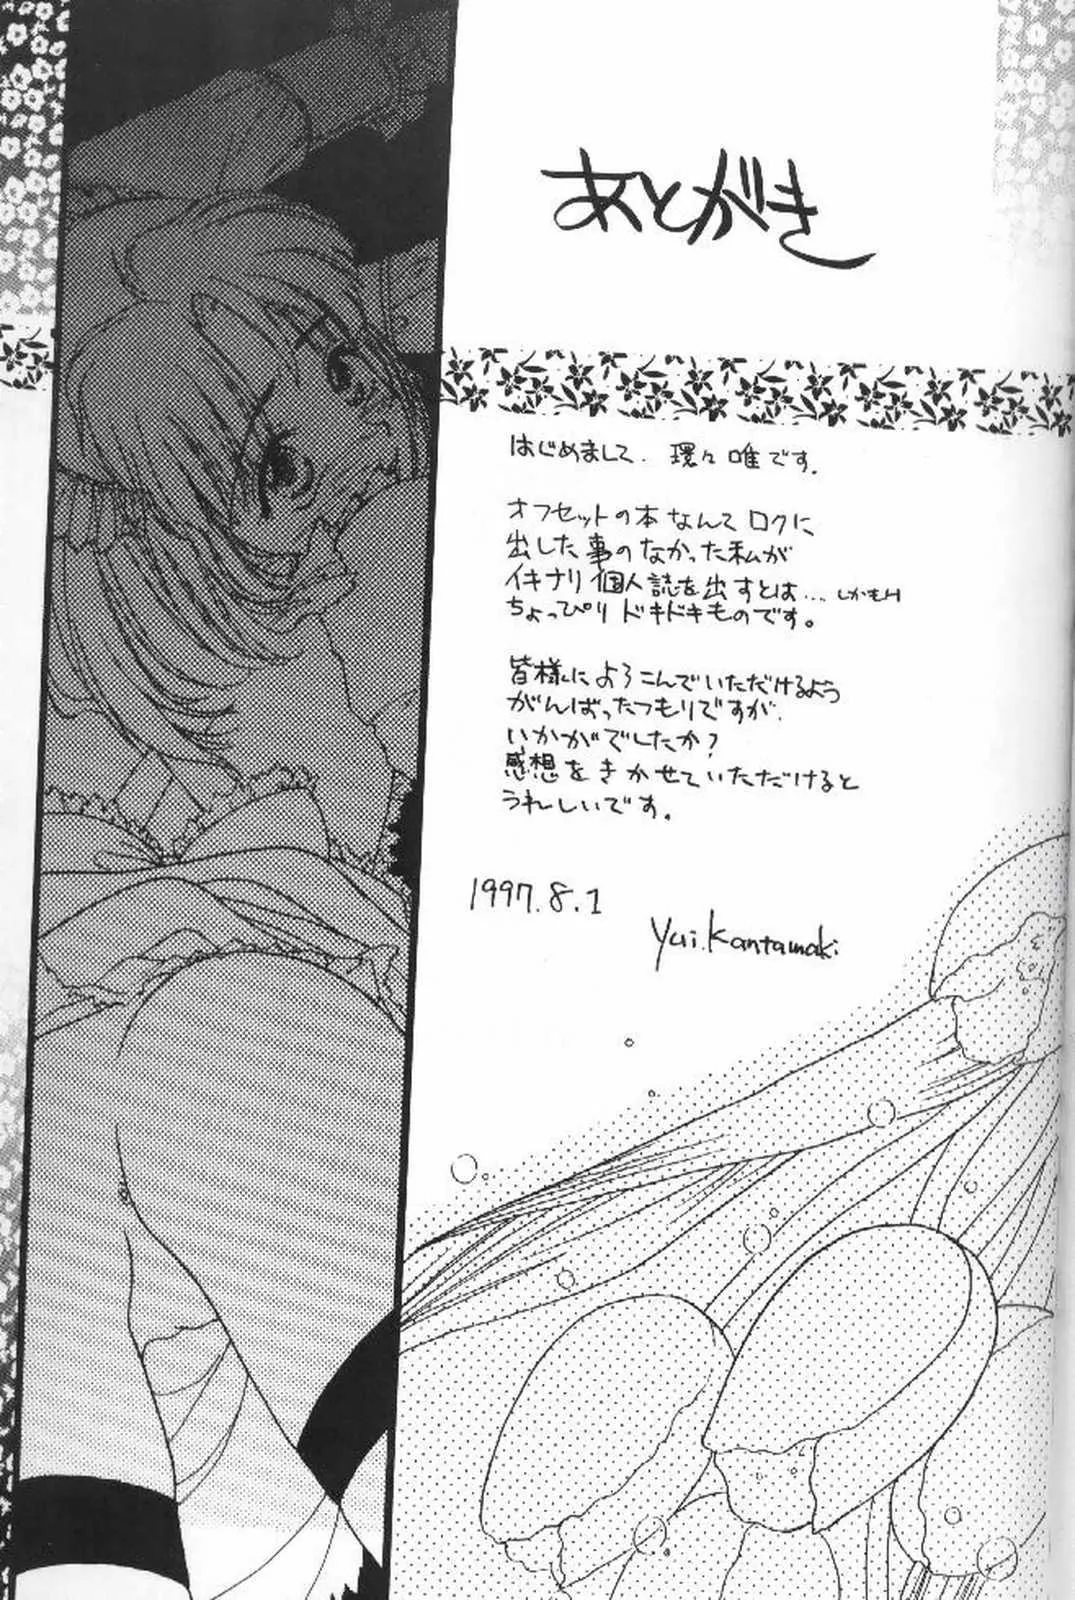 あとがき
はじめまして、環々唯です。
オフセットの本なんてロクに
出した事のなかった私が
イキナリ個人誌を出すとは…しかもH
ちょっぴりドキドキものです。
皆様によろこんでいただけるよう
がんばったつもりですが、
いかがでしたか?
感想をきかせていただけると
うれしいです。
1997.8.1
Yui.Kantamaki